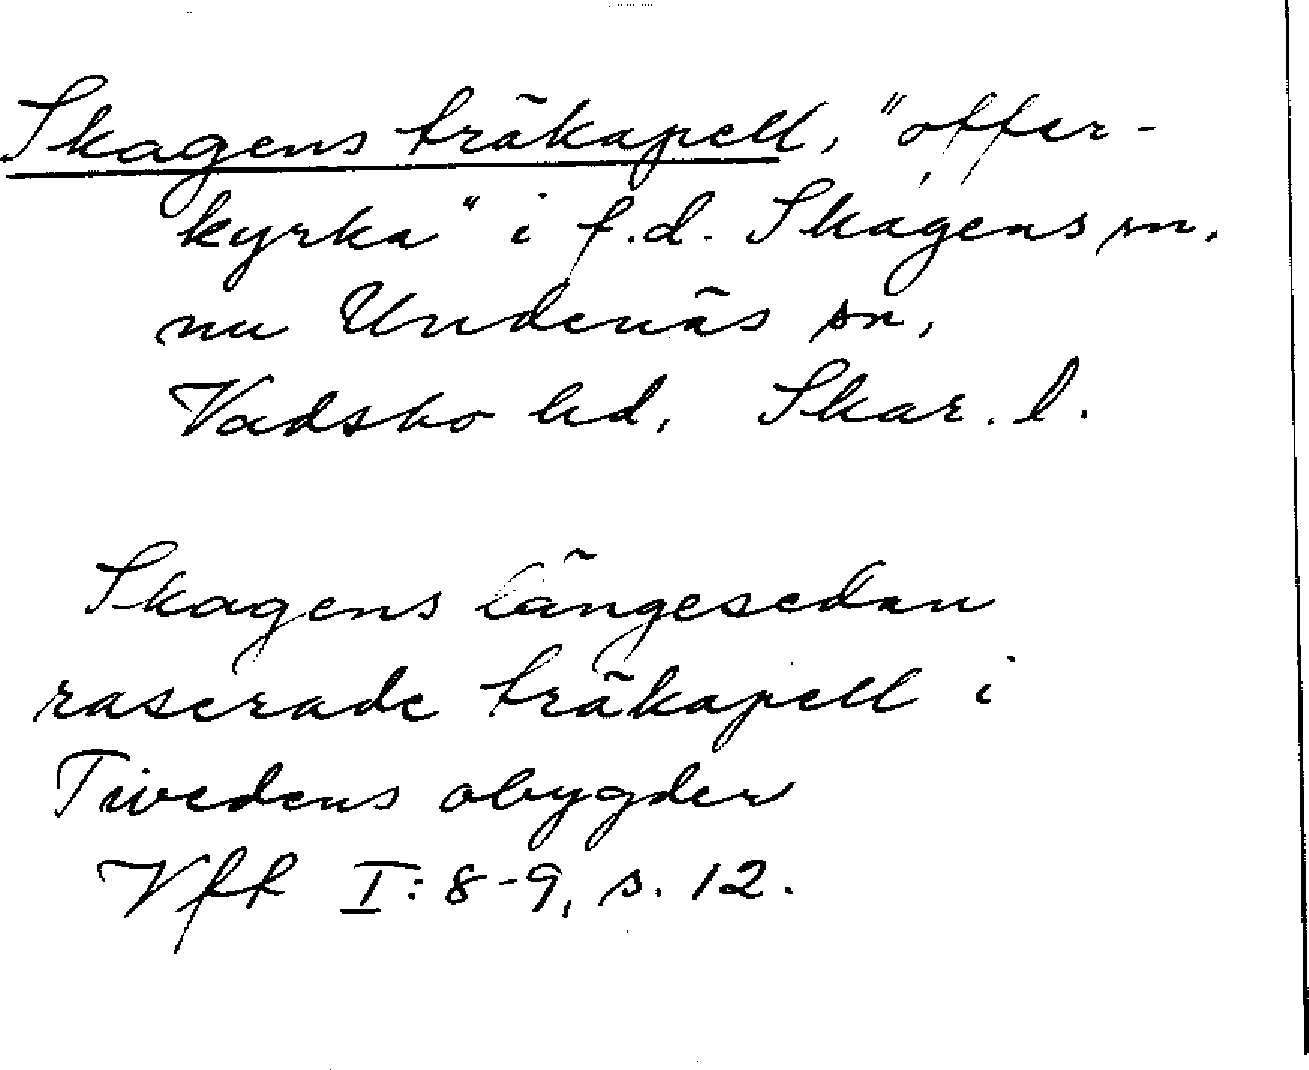 Skagens träkapell, "offer-
kyrka" i f.d. Skagens sn,
nu Undenäs sn,
Vadsbo hd, Skar. l.
Skagens längesedan
raserade träkapell i
Tivedens obygder
Vff I:8-9, s. 12.